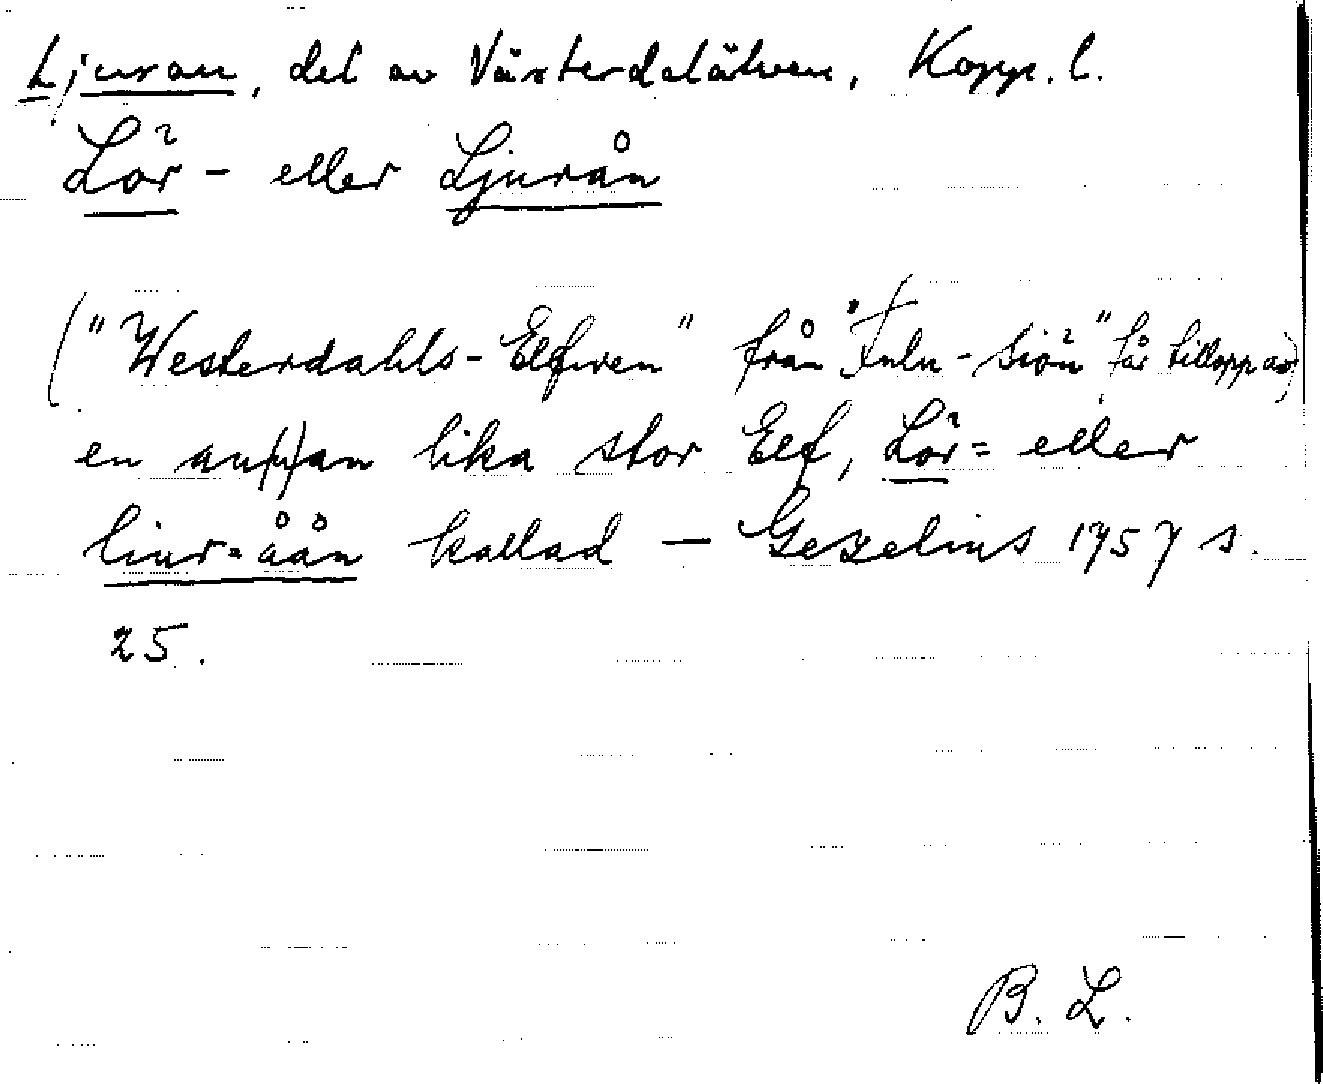 Ljuran, del av Västerdalälven, Kopp. l.
Lör- eller Ljurån
("Westerdahls-Elfwen" från "Fulu-siön" får tillopp av)
en an(n)an lika stor Elf, Lör= eller
liur=åån kallad — Gezelius 1757 s.
25.
B. L.